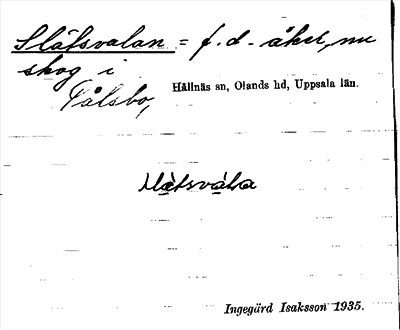 Slåtsvalan = f. d. åker, nu
skog i
Pålsbo,
Hållnäs sn, Olands hd, Uppsala län.
Ingegärd Isaksson 1935.